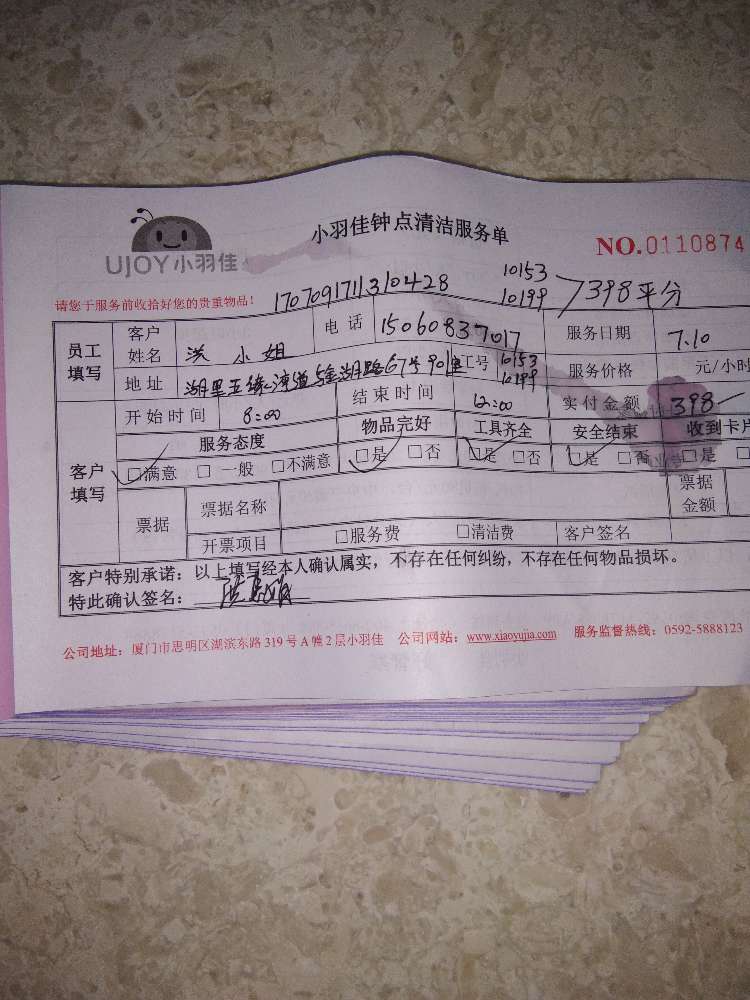 UJOY小羽佳
小羽佳钟点清洁服务单
NO.0110874
请您于服务前收拾好您的贵重物品!
170709171131 0428
10153
10199
398平分
员工填写
客户姓名 洪小姐 电话 15060837017 服务日期 7.10
地址 湖里五缘湾道 金湖路67号901室 工号 10153 10199 服务价格 元/小时
客户填写
开始时间 8:00 结束时间 12:00 实付金额 398一
服务态度 物品完好 工具齐全 安全结束 收到卡片
□满意 □一般 □不满意 □是 □否 □是 □否 □是 □否 □是
票据 票据名称 票据金额
开票项目 □服务费 □清洁费 客户签名
客户特别承诺:以上填写经本人确认属实,不存在任何纠纷,不存在任何物品损坏。
特此确认签名:
公司地址:厦门市思明区湖滨东路319号A幢2层小羽佳 公司网站:www.xiaoyujia.com 服务监督热线:0592-5888123